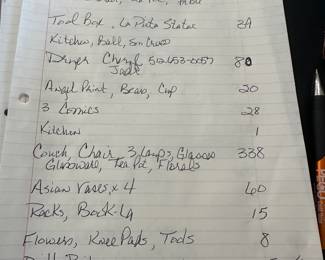 Tool Box, La Pieta Statue 2A
Kitchen, Ball, San
Dryer Cheryl 512-653-0057 80
Jade
Angel Print, Brass, Cup 20
3 Comics 28
Kitchen 1
Couch, Chair, 3 Lamps, Glasses 338
Glassware, Tea Pot, Florals
Asian Vases x 4 60
Rocks, Book-LA 15
Flowers, Knee Pads, Tools 8